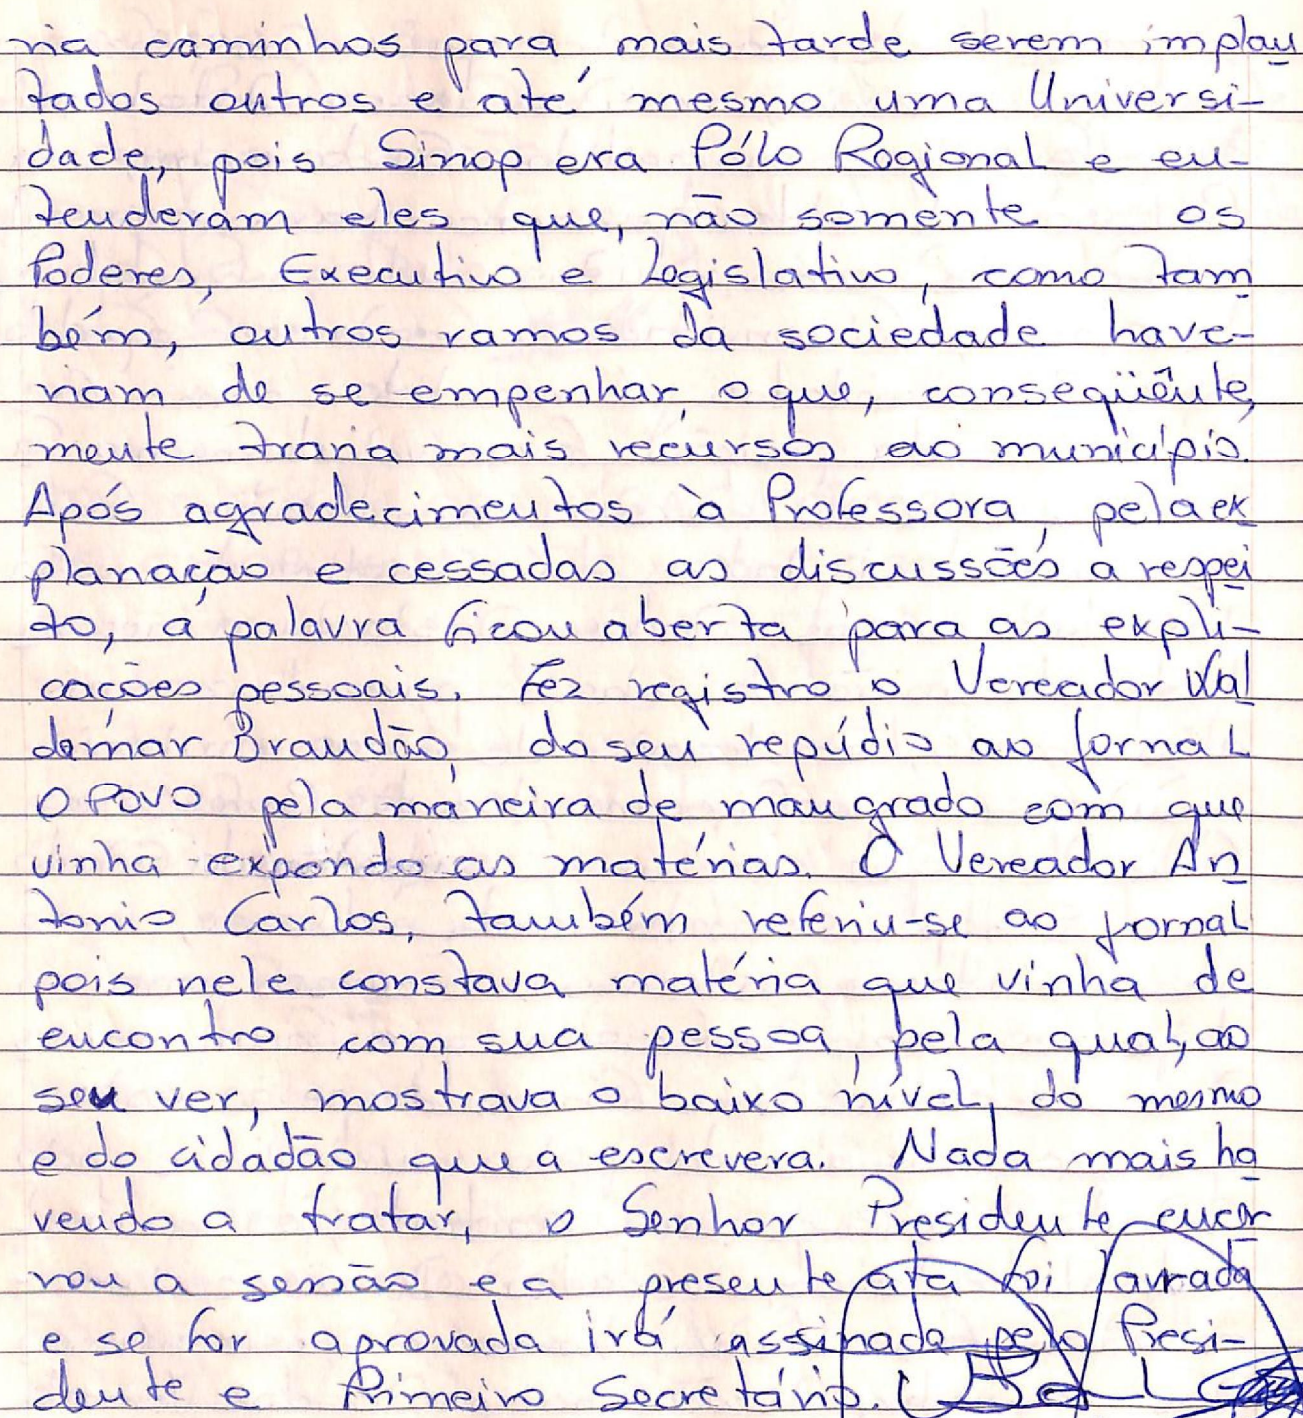 ria caminhos para mais tarde serem implan
tados outros e até mesmo uma Universi-
dade, pois Sinop era Pólo Regional e en-
tenderam eles que, não somente os
Poderes, Executivo e Legislativo, como tam
bém, outros ramos da sociedade have-
riam de se empenhar, o que, conseqüênte,
mente traria mais recursos ao município.
Após agradecimentos à Professora, pela ex
planação e cessadas as discussões a respei
to, a palavra ficou aberta para as expli-
cações pessoais. Fez registro o Vereador Wal
demar Brandão, do seu repúdio ao jornal
O Povo pela maneira de mau grado com que
vinha expondo as matérias. O Vereador An
tonio Carlos, também referiu-se ao jornal
pois nele constava matéria que vinha de
encontro com sua pessoa, pela qual, ao
seu ver, mostrava o baixo nível, do mesmo
e do cidadão que a escrevera. Nada mais ha
vendo a tratar, o Senhor Presidente encer
rou a sessão e a presente ata foi lavrada
e se for aprovada irá assinada pelo Presi-
dente e Primeiro Secretário.